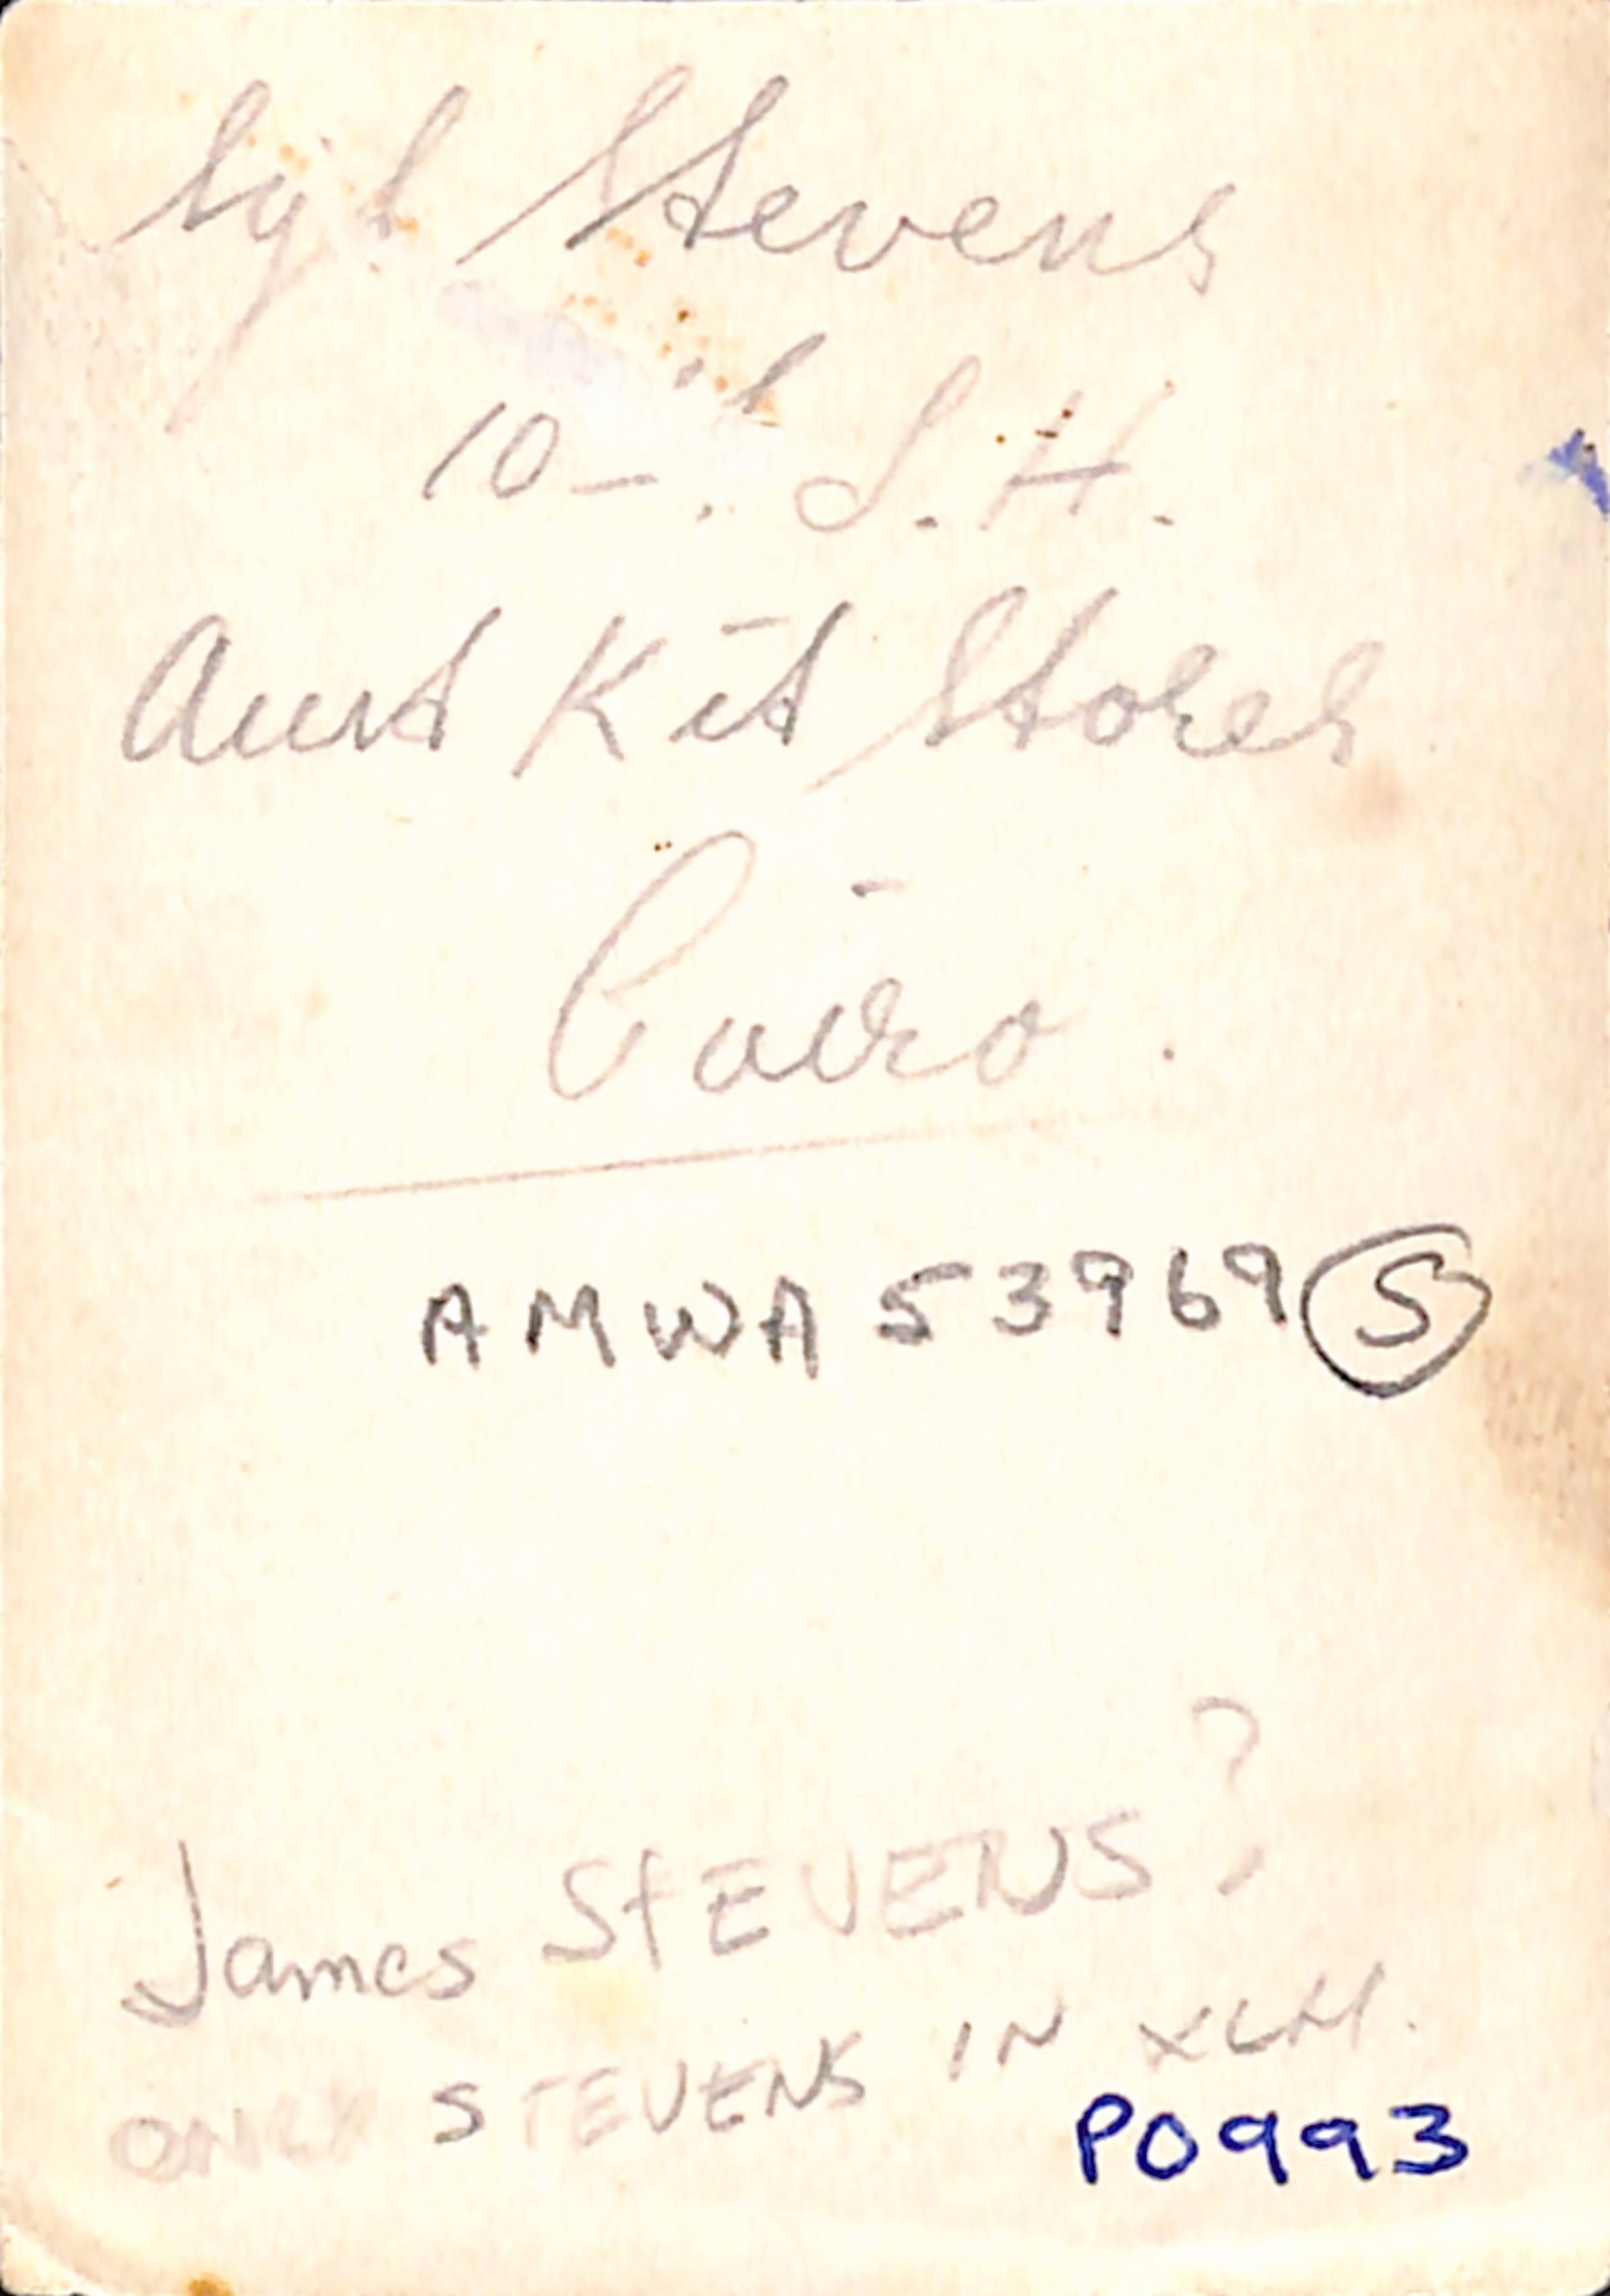 Sgt Stevens
10th. L.H.
Aust Kit Stores
Cairo.
AMWA 53969 S
James STEVENS?
ONLY STEVENS IN XLH.
P0993